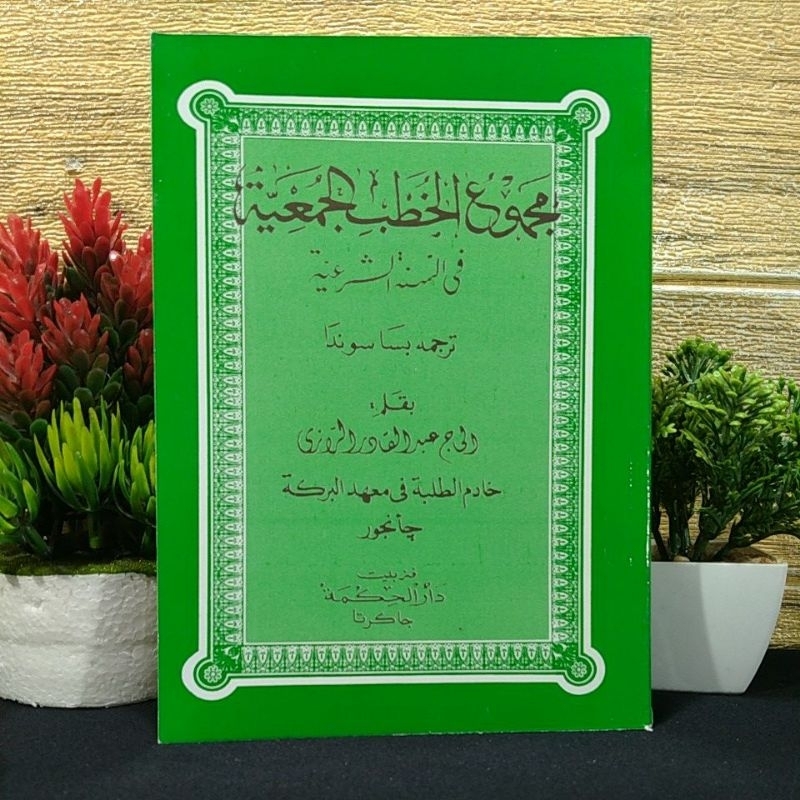 مجموع الخطب الجمعية
فى السنة الشرعية
ترجمه بسا سوندا
بقلم:
الحاج عبد القادر الرازى
خادم الطلبة فى معهد البركة
چيأنجور
فنربيت
دَارُ الْحِكْمَةْ
جاكرتا